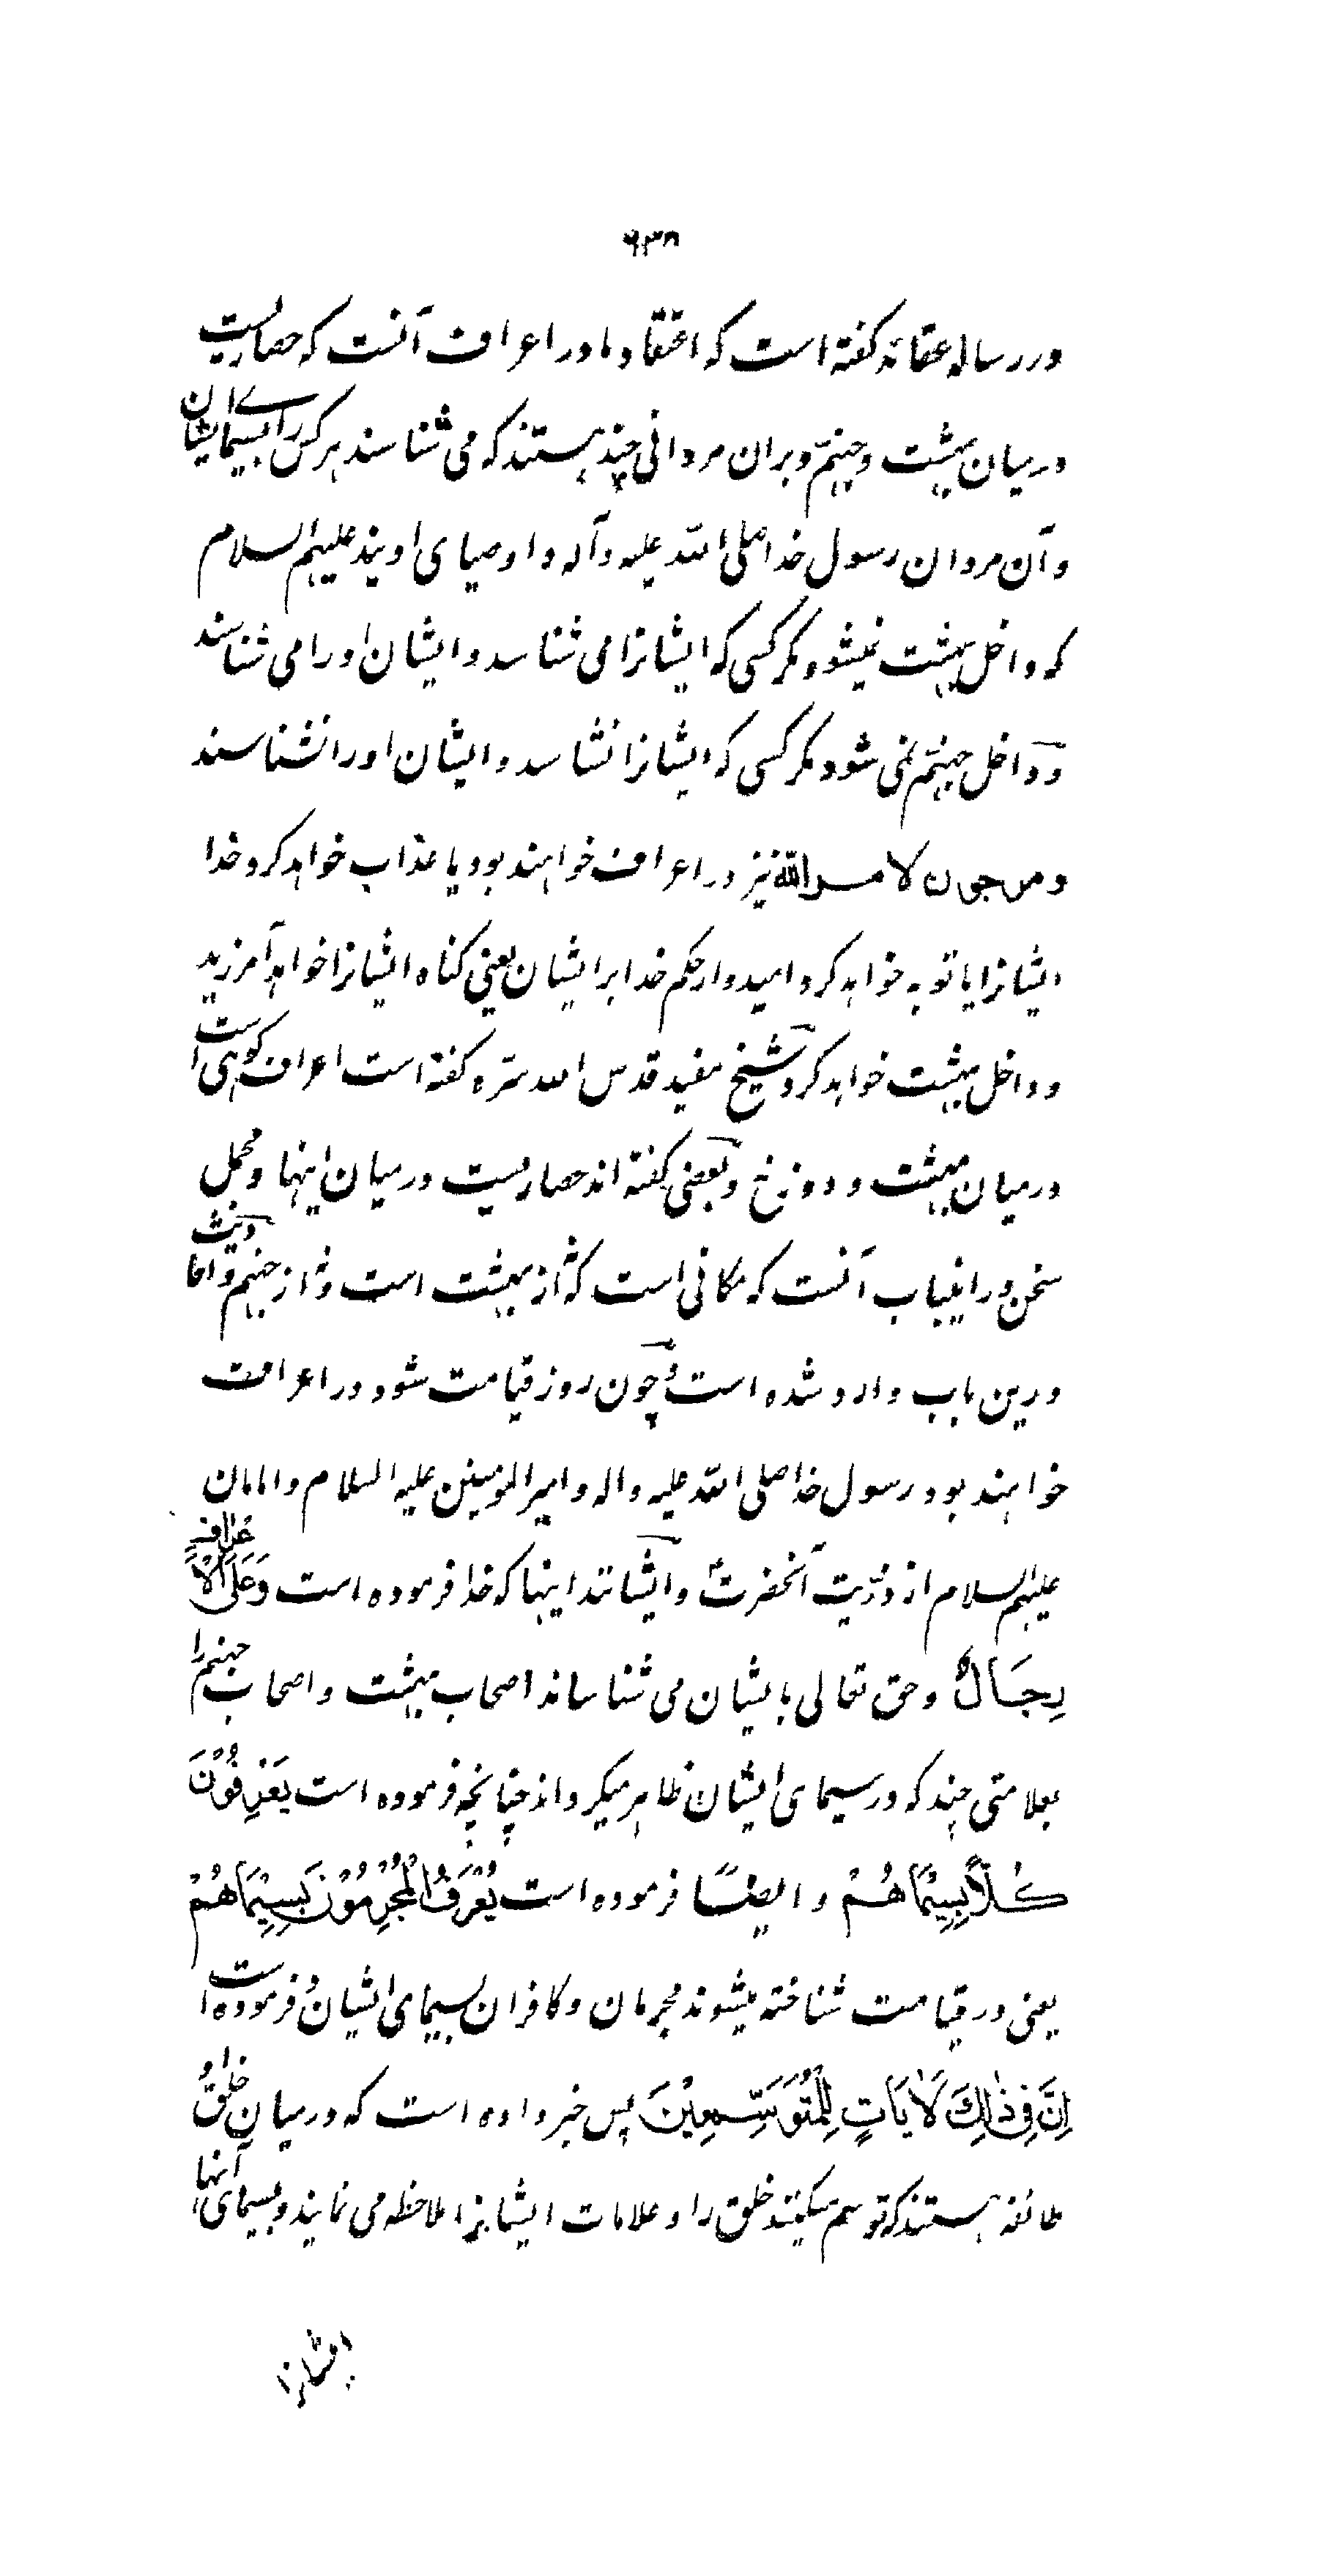 ۶۳۸
در رساله عقائد گفته است که اعتقاد ما در اعراف آنست که حصاریست
در میان بهشت و جهنم و بر ان مردانی چند هستند که می شناسند هر کس را بسیمای ایشان
و آن مردان رسول خدا صلی الله علیه و آله و اوصیای اویند علیهم السلام
که داخل بهشت نمیشود مگر کسی که ایشانرا می شناسد و ایشان او را می شناسند
و داخل جهنم نمی شود مگر کسی که ایشانرا نشناسد و ایشان او را نشناسند
و مرجون لامر الله نیز در اعراف خواهند بود یا عذاب خواهد کرد خدا
ایشانرا یا توبه خواهد کرد امیدوار حکم خدا بر ایشان یعنی گناه ایشانرا خواهد آمرزید
و داخل بهشت خواهد کرد و شیخ مفید قدس الله سره گفته است اعراف کوهی است
در میان بهشت و دوزخ و بعضی گفته اند حصاریست در میان اینها و مجمل
سخن در اینباب آنست که مکانی است که نه از بهشت است و نه از جهنم و احادیث
درین باب وارد شده است و چون روز قیامت شود در اعراف
خواهند بود رسول خدا صلی الله علیه و اله و امیر المؤمنین علیه السلام و امامان
علیهم السلام از ذریت آنحضرت و ایشانند اینها که خدا فرموده است وَعَلَى الْأَعْرَافِ
رِجَالٌ و حق تعالی بایشان می شناساند اصحاب بهشت و اصحاب جهنم را
بعلامتی چند که در سیمای ایشان ظاهر میگرداند چنانچه فرموده است یَعْرِفُوْنَ
كُلًّا بِسِيْمَاهُمْ و ایضًا فرموده است يُعْرَفُ الْمُجْرِمُوْنَ بِسِيْمَاهُمْ
یعنی در قیامت شناخته میشوند مجرمان و کافران بسیمای ایشان و فرموده است
اِنَّ فِي ذٰلِكَ لَاٰيَاتٍ لِلْمُتَوَسِّمِيْنَ پس خبر داده است که در میان خلق او
طائفه هستند که توسم میکنند خلق را و علامات ایشانرا ملاحظه می نمایند و بسیمای آنها
ایشانرا